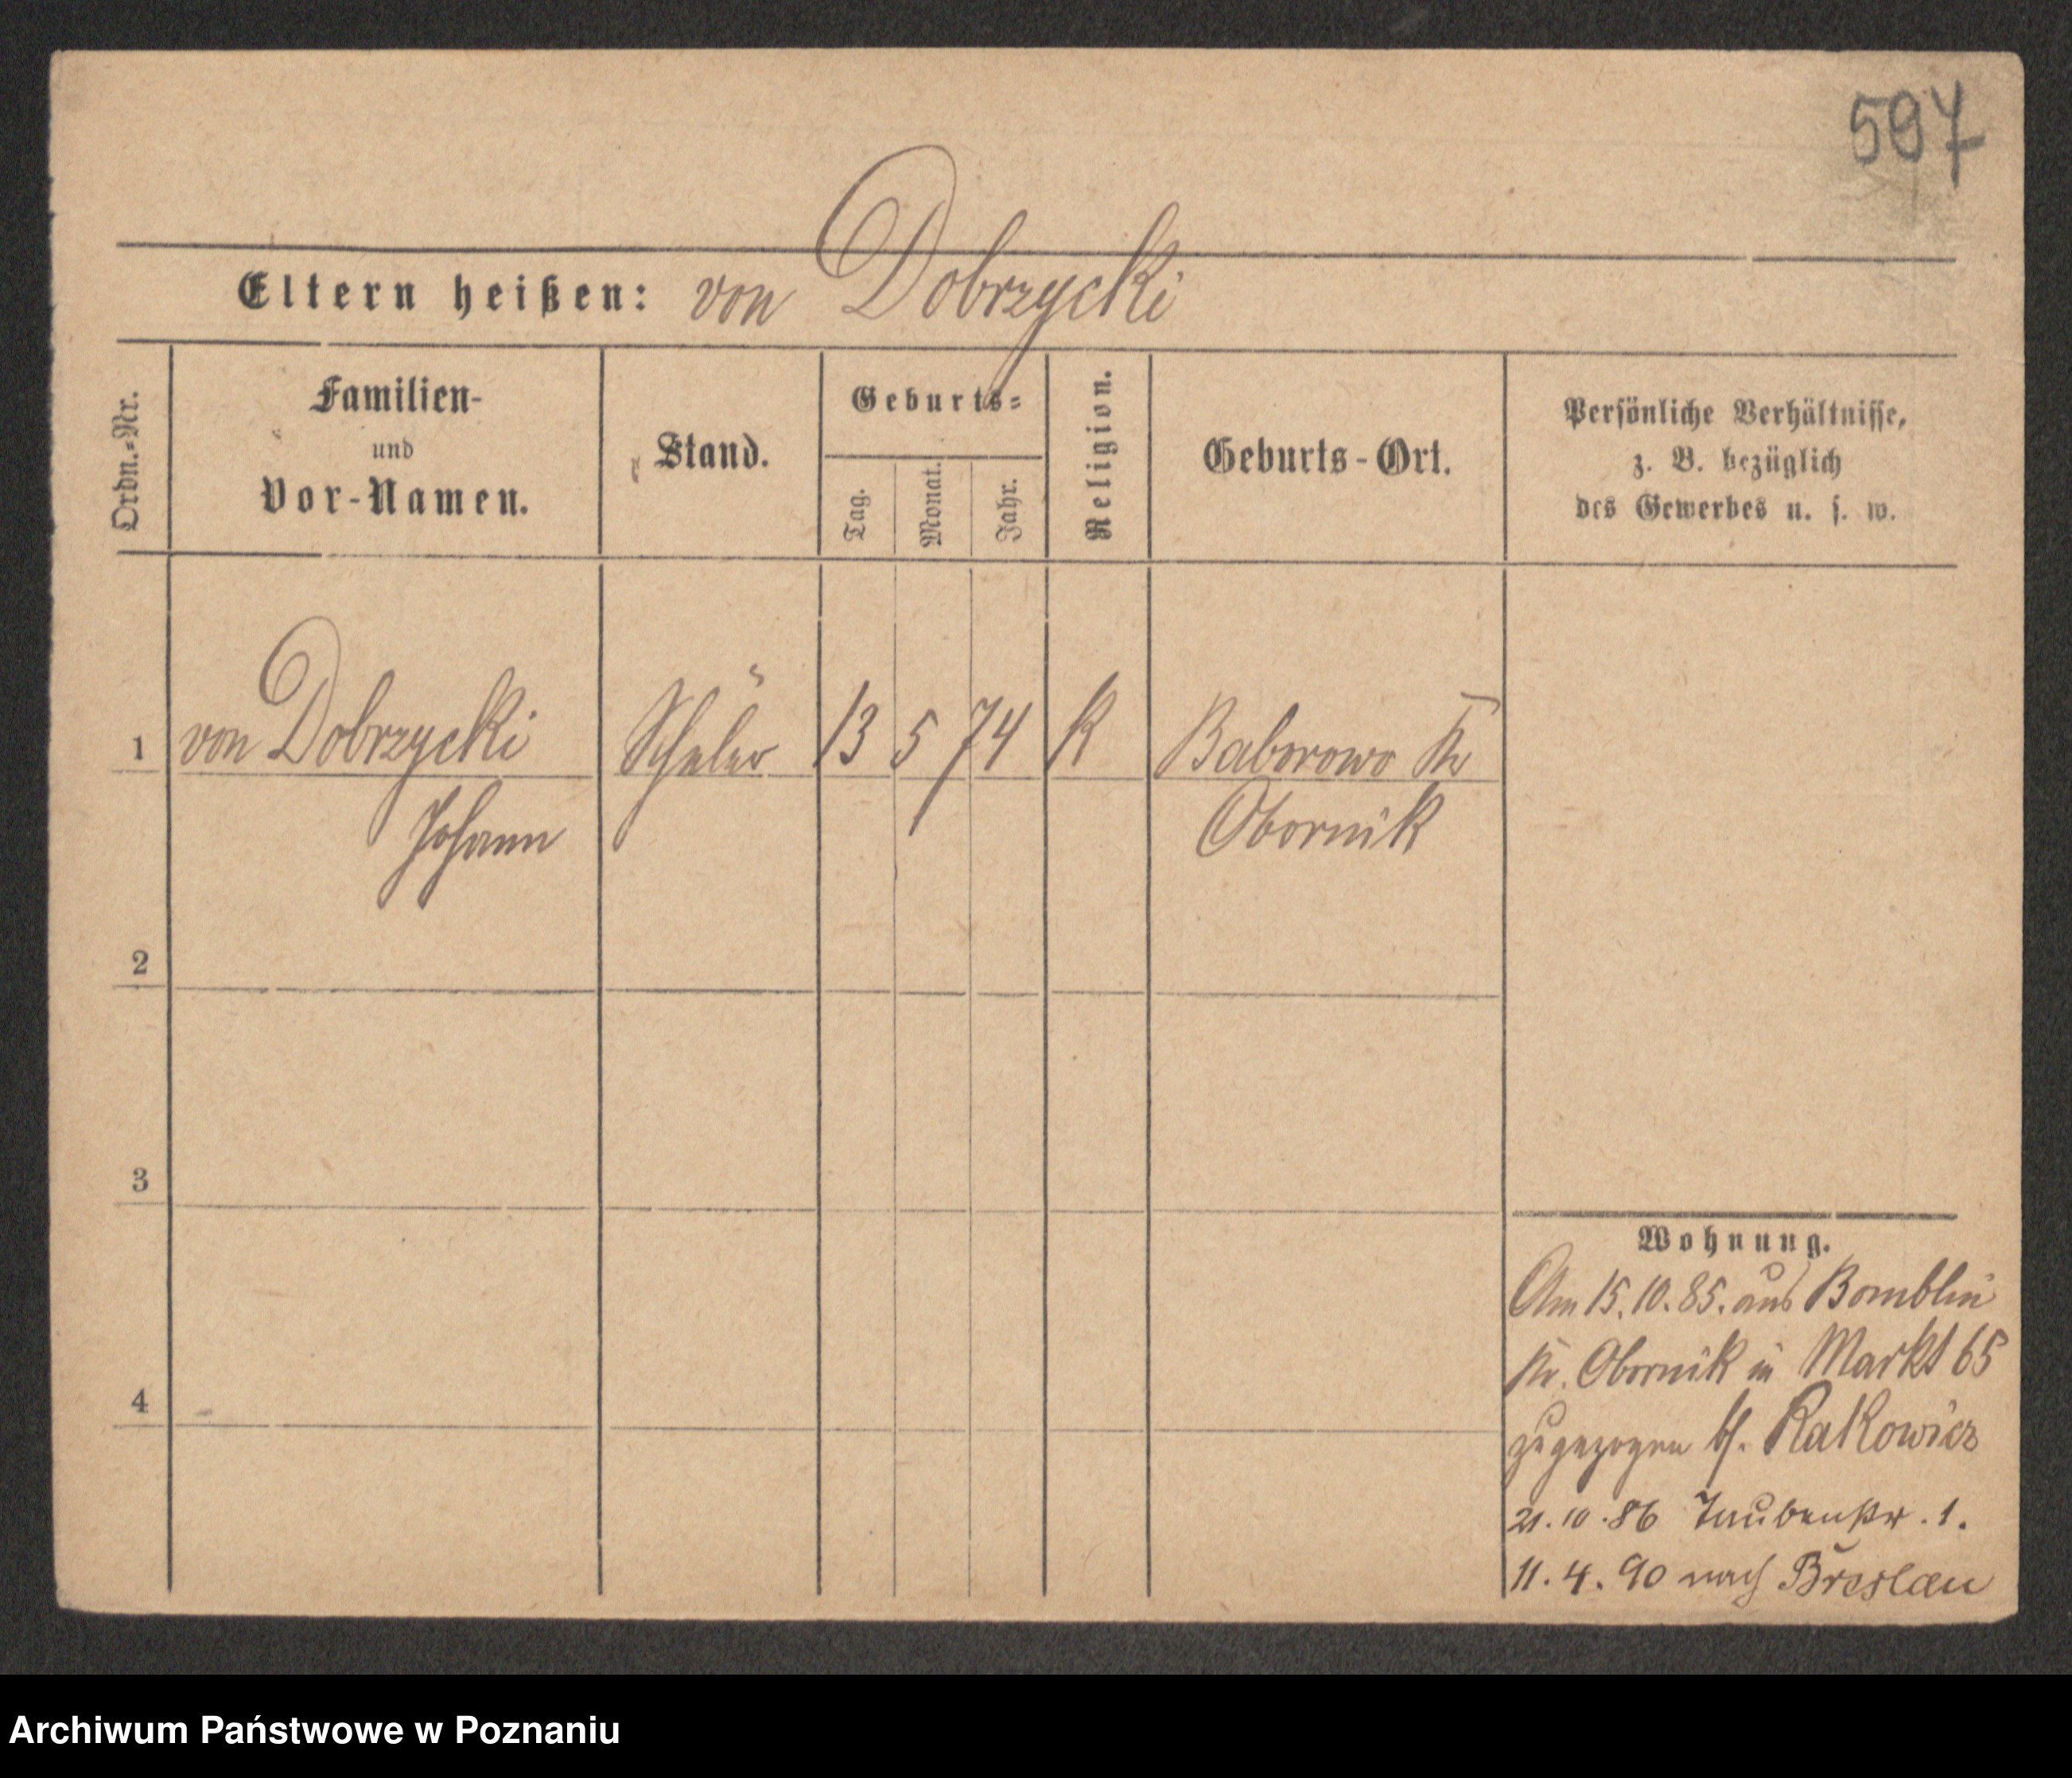 597
Eltern heißen: von Dobrzycki
Ordn.-Nr.
Familien-
und
Vor-Namen.
Stand.
Geburts=
Tag.
Monat.
Jahr.
Religion.
Geburts-Ort.
Persönliche Verhältnisse,
z. B. bezüglich
des Gewerbes u. s. w.
1 von Dobrzycki Schüler 13 5 74 K Baborowo Kr
Johann Obornik
2
3
4
Wohnung.
Am 15.10.85. aus Bomblin
Kr. Obornik in Markt 65
zugezogen bh. Rakowicz
21.10.86 Taubenstr. 1.
11.4.90 nach Breslau
Archiwum Państwowe w Poznaniu